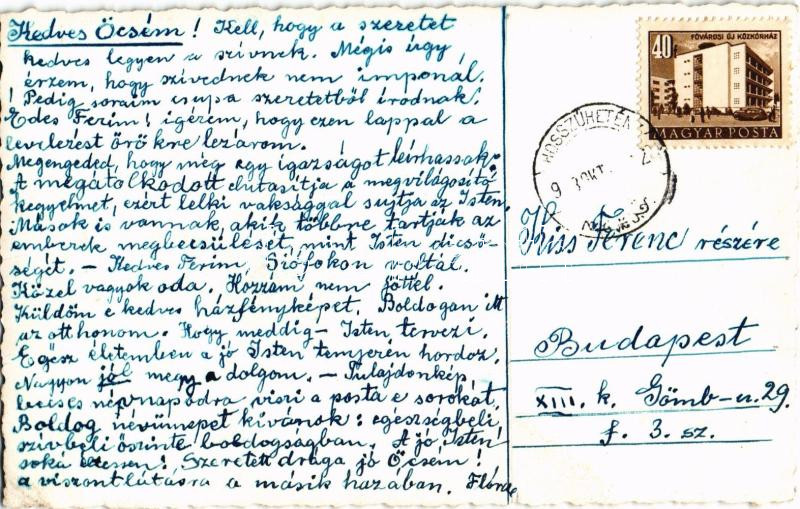 Kedves Öcsém! Kell, hogy a szeretet
kedves legyen a szívnek. Mégis úgy
érzem, hogy szívednek nem imponál.
Pedig soraim csupa szeretetből íródnak.
Édes Ferim! igérem, hogy ezen lappal a
levelezést örökre lezárom.
Megengeded, hogy még egy igazságot leírhassak.
A megátolkodott elutasítja a megvilágosító
kegyelmet, ezért lelki vaksággal sujtja az Isten.
Mások is vannak, akik többre tartják az
emberek megbecsülését, mint Isten dicső-
ségét. – Kedves Ferim, Siófokon voltál.
Közel vagyok oda. Hozzám nem jöttél.
Küldöm e kedves házfényképet. Boldogan itt
az otthonom. Hogy meddig – Isten tervezi.
Egész életemben a jó Isten tenyerén hordoz.
Nagyon jól megy a dolgom. – Tulajdonkép
becses névnapodra viszi a posta e sorokat.
Boldog névünnepet kívánok: egészségbeli
szívbeli őszinte boldogságban. A jó Isten
soká éltessen! Szeretett drága jó Öcsém!
a viszontlátásra a másik hazában. Flóra
40f
FŐVÁROSI ÚJ KÖZKÓRHÁZ
MAGYAR POSTA
HOSSZÚHETÉNY
Kiss Ferenc részére
Budapest
XIII. k. Gömb-u. 29.
f. 3. sz.